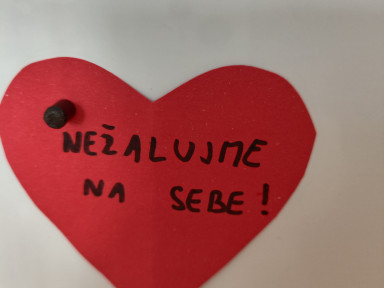 NEŽALUJME
NA SEBE!